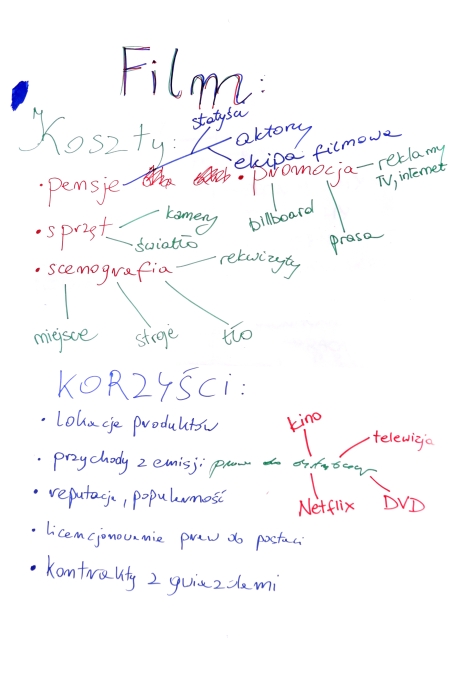 Film:
Koszty:
statyści
aktorzy
ekipa filmowa
• pensje
• promocja
reklamy
TV, internet
billboard
prasa
• sprzęt
kamery
światło
• scenografia
rekwizyty
miejsce
stroje
tło
KORZYŚCI:
• lokacje produktów
• przychody z emisji prawo do
kino
telewizja
Netflix
DVD
• reputacja, popularność
• licencjonowanie praw do postaci
• kontrakty z gwiazdami